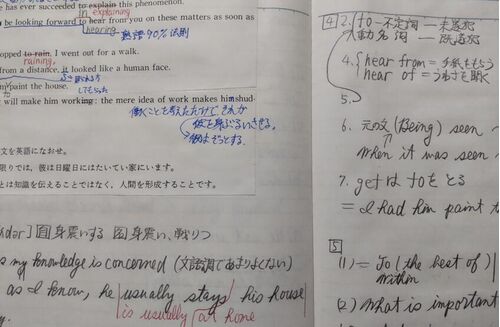 e has ever succeeded to explain this phenomenon.
in explaining
be looking forward to hear from you on these matters as soon as
hearing
熟語90%法則
opped to rain, I went out for a walk.
raining,
from a distance, it looked like a human face.
paint the house.
してもらった
will make him working: the mere idea of work makes him shud-
働くことを考えただけで
彼を身ぶるいさせる。
文を英語になおせ。
限りでは,彼は日曜日にはたいてい家にいます。
とは知識を伝えることではなく,人間を形成することです。
dər] 自 身震いする 名 身震い,戦りつ
s my knowledge is concerned (文語調であまりよくない)
as I know, he usually stays his house
is usually at home
4 2. to-不定詞 — 未遂犯
動名詞 — 既遂犯
4. hear from = 手紙をもらう
hear of = うわさを聞く
5.
6. 元の文 (Being) seen
When it was seen
7. getは toをとる
= I had him paint t
5
(1) = To (the best of)
within
(2) What is important